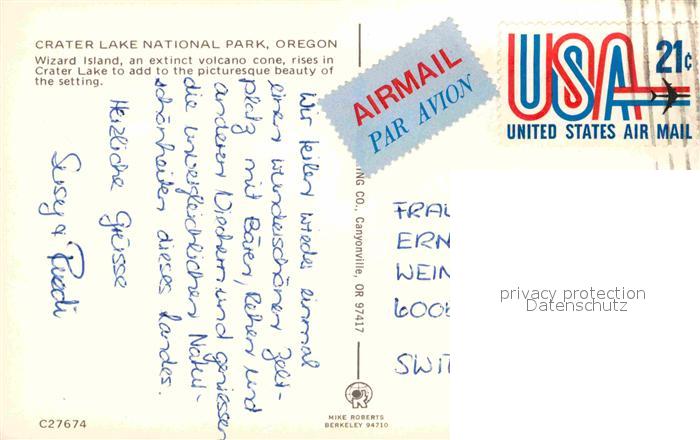 CRATER LAKE NATIONAL PARK, OREGON
Wizard Island, an extinct volcano cone, rises in
Crater Lake to add to the picturesque beauty of
the setting.
Wir teilen wieder einmal
einen wunderschönen Zelt-
platz mit Bären, Rehen und
anderen Viechern und geniessen
die unvergleichlichen Natur-
schönheiten dieses Landes.
Herzliche Grüsse
Susey & Ruedi
AIRMAIL
PAR AVION
USA 21¢
UNITED STATES AIR MAIL
ING CO., Canyonville, OR 97417
FRAU
ERN
WEIN
6006
SWIT
privacy protection
Datenschutz
C27674
MIKE ROBERTS
BERKELEY 94710